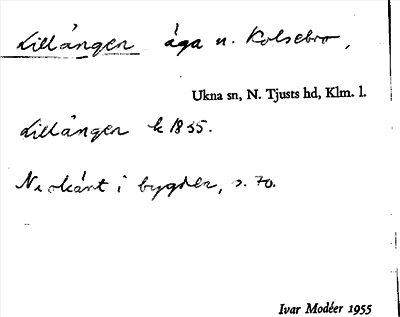 Lillången äga u. Kolsebro,
Ukna sn, N. Tjusts hd, Klm. l.
Lillången k 1855.
i bygder, s. 70.
Ivar Modéer 1955